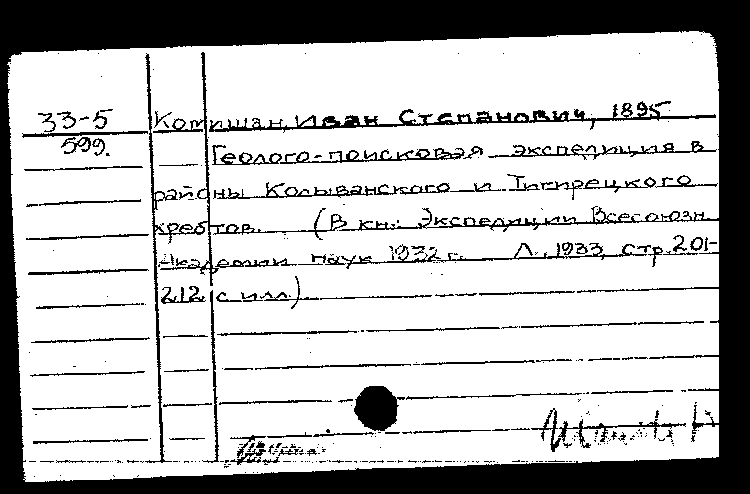 33-5 Комишан, Иван Степанович, 1895
599. Геолого-поисковая экспедиция в
районы Колыванского и Тигирецкого
хребтов. (В кн.: Экспедиции Всесоюзн.
Академии наук 1932 г. Л., 1933, стр. 201-
212 с илл.)